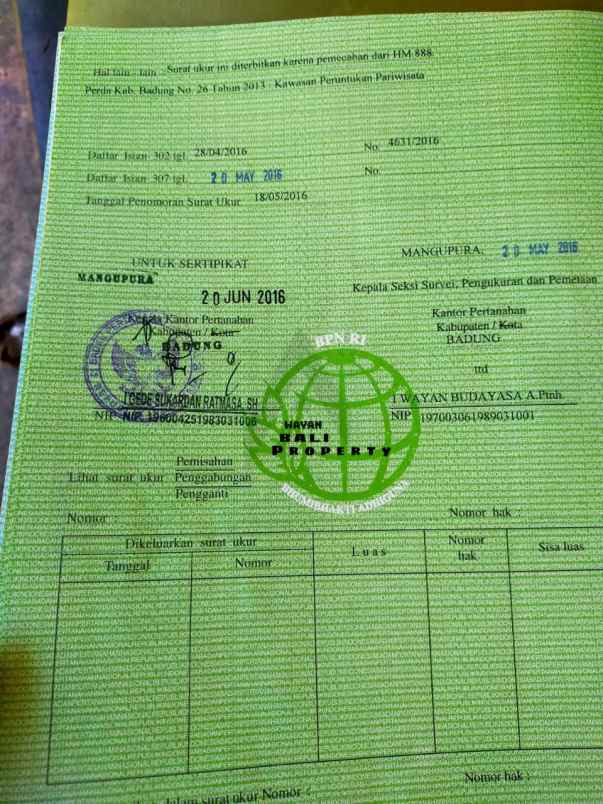 Hal lain - lain : Surat ukur ini diterbitkan karena pemecahan dari HM 888.
Perda Kab. Badung No. 26 Tahun 2013 : Kawasan Peruntukan Pariwisata
Daftar Isian 302 tgl. 28/04/2016 No. 4631/2016
Daftar Isian 307 tgl. 20 MAY 2016 No.
Tanggal Penomoran Surat Ukur 18/05/2016
UNTUK SERTIPIKAT
MANGUPURA
20 JUN 2016
Kepala Kantor Pertanahan
Kabupaten / Kota
BADUNG
I GEDE SUKARDAN RATMASA, SH
NIP. NIP. 196004251983031006
MANGUPURA, 20 MAY 2016
Kepala Seksi Survei, Pengukuran dan Pemetaan
Kantor Pertanahan
Kabupaten / Kota
BADUNG
ttd
I WAYAN BUDAYASA A.Ptnh.
NIP 197003061989031001
BPN RI
WAYAN
BALI
PROPERTY
BHUMIBHAKTI ADHIGUNA
Pemisahan
Lihat surat ukur Penggabungan
Pengganti
Nomor : Nomor hak :
Dikeluarkan surat ukur Luas Nomor hak Sisa luas
Tanggal Nomor
dalam surat ukur Nomor : Nomor hak :